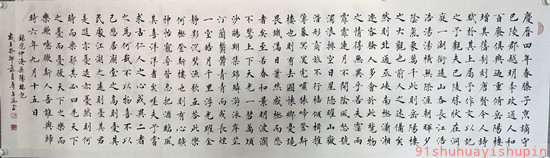 慶曆四年春滕子京謫守
巴陵郡越明年政通人和
百廢俱興乃重修岳陽樓
增其舊制刻唐賢今人詩
賦於其上屬予作文以記
之予觀夫巴陵勝狀在洞
庭一湖銜遠山吞長江浩
浩湯湯橫無際涯朝暉夕
陰氣象萬千此則岳陽樓
之大觀也前人之述備矣
然則北通巫峽南極瀟湘
遷客騷人多會於此覽物
之情得無異乎若夫霪雨
霏霏連月不開陰風怒號
濁浪排空日星隱曜山嶽
潛形商旅不行檣傾楫摧
薄暮冥冥虎嘯猿啼登斯
樓也則有去國懷鄉憂讒
畏譏滿目蕭然感極而悲
者矣至若春和景明波瀾
不驚上下天光一碧萬頃
沙鷗翔集錦鱗游泳岸芷
汀蘭郁郁青青而或長煙
一空皓月千里浮光躍金
靜影沉璧漁歌互答此樂
何極登斯樓也則有心曠
神怡寵辱偕忘把酒臨風
其喜洋洋者矣嗟夫予嘗
求古仁人之心或異二者
之為何哉不以物喜不以
己悲居廟堂之高則憂其
民處江湖之遠則憂其君
是進亦憂退亦憂然則何
時而樂耶其必曰先天下
之憂而憂後天下之樂而
樂乎噫微斯人吾誰與歸
時六年九月十五日
錄范仲淹岳陽樓記
91shuhuayishupin